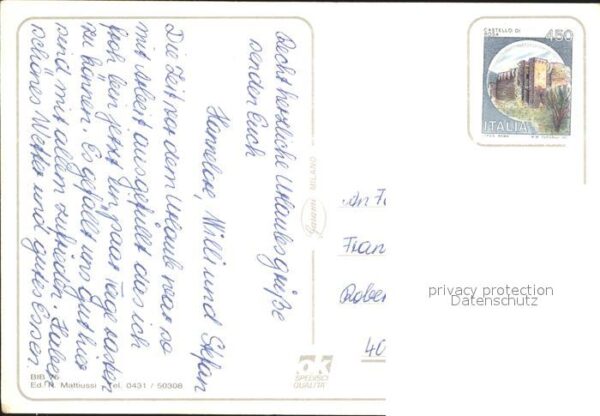 Recht herzliche Urlaubsgrüße
senden Euch
Hannelore, Willi und Stefan
Die Zeit vor dem Urlaub war so
mit Arbeit ausgefüllt das ich
froh bin jetzt ein paar Tage rasten
zu können. Es gefällt uns gut hier
sind mit allem zufrieden. Haben
schönes Wetter und gutes Essen.
BIB 76
Ed. A. Mattiussi - Tel. 0431 / 50308
Garami MILANO
OK
SPEDISCI
QUALITÀ
CASTELLO DI
450
ITALIA
An
Fran
Rober
40
privacy protection
Datenschutz